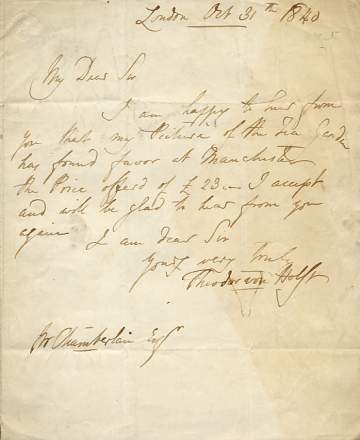 London Oct 31th 1840
My Dear Sir
I am happy to hear from
you that my Picture of the Tea Garden
has found favor at Manchester
the Price offerd of £ 23 I accept
and will be glad to hear from you
again
I am Dear Sir
Yours very truly
Theodor von Holst
Chamberlain Esqr